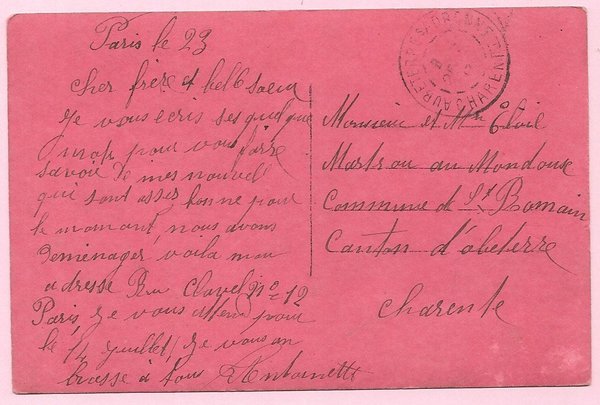 Paris le 23
cher frère et bell soeur
Je vous ecris ses quelque
mots pour vous faire
savoir de mes nouvel
qui sont asser bonne pour
le momant, nous avons
demenager voila mon
adresse Ru Clavel No 12
Paris, Je vous attend pour
le 14 Juillet, Je vous an
brasse à tous Antoinette
AUBETERRE-S-DRONNE
CHARENTE
Monsieur et Mme
Martrou au
Commune de St Romain
Canton d'obeterre
Charente